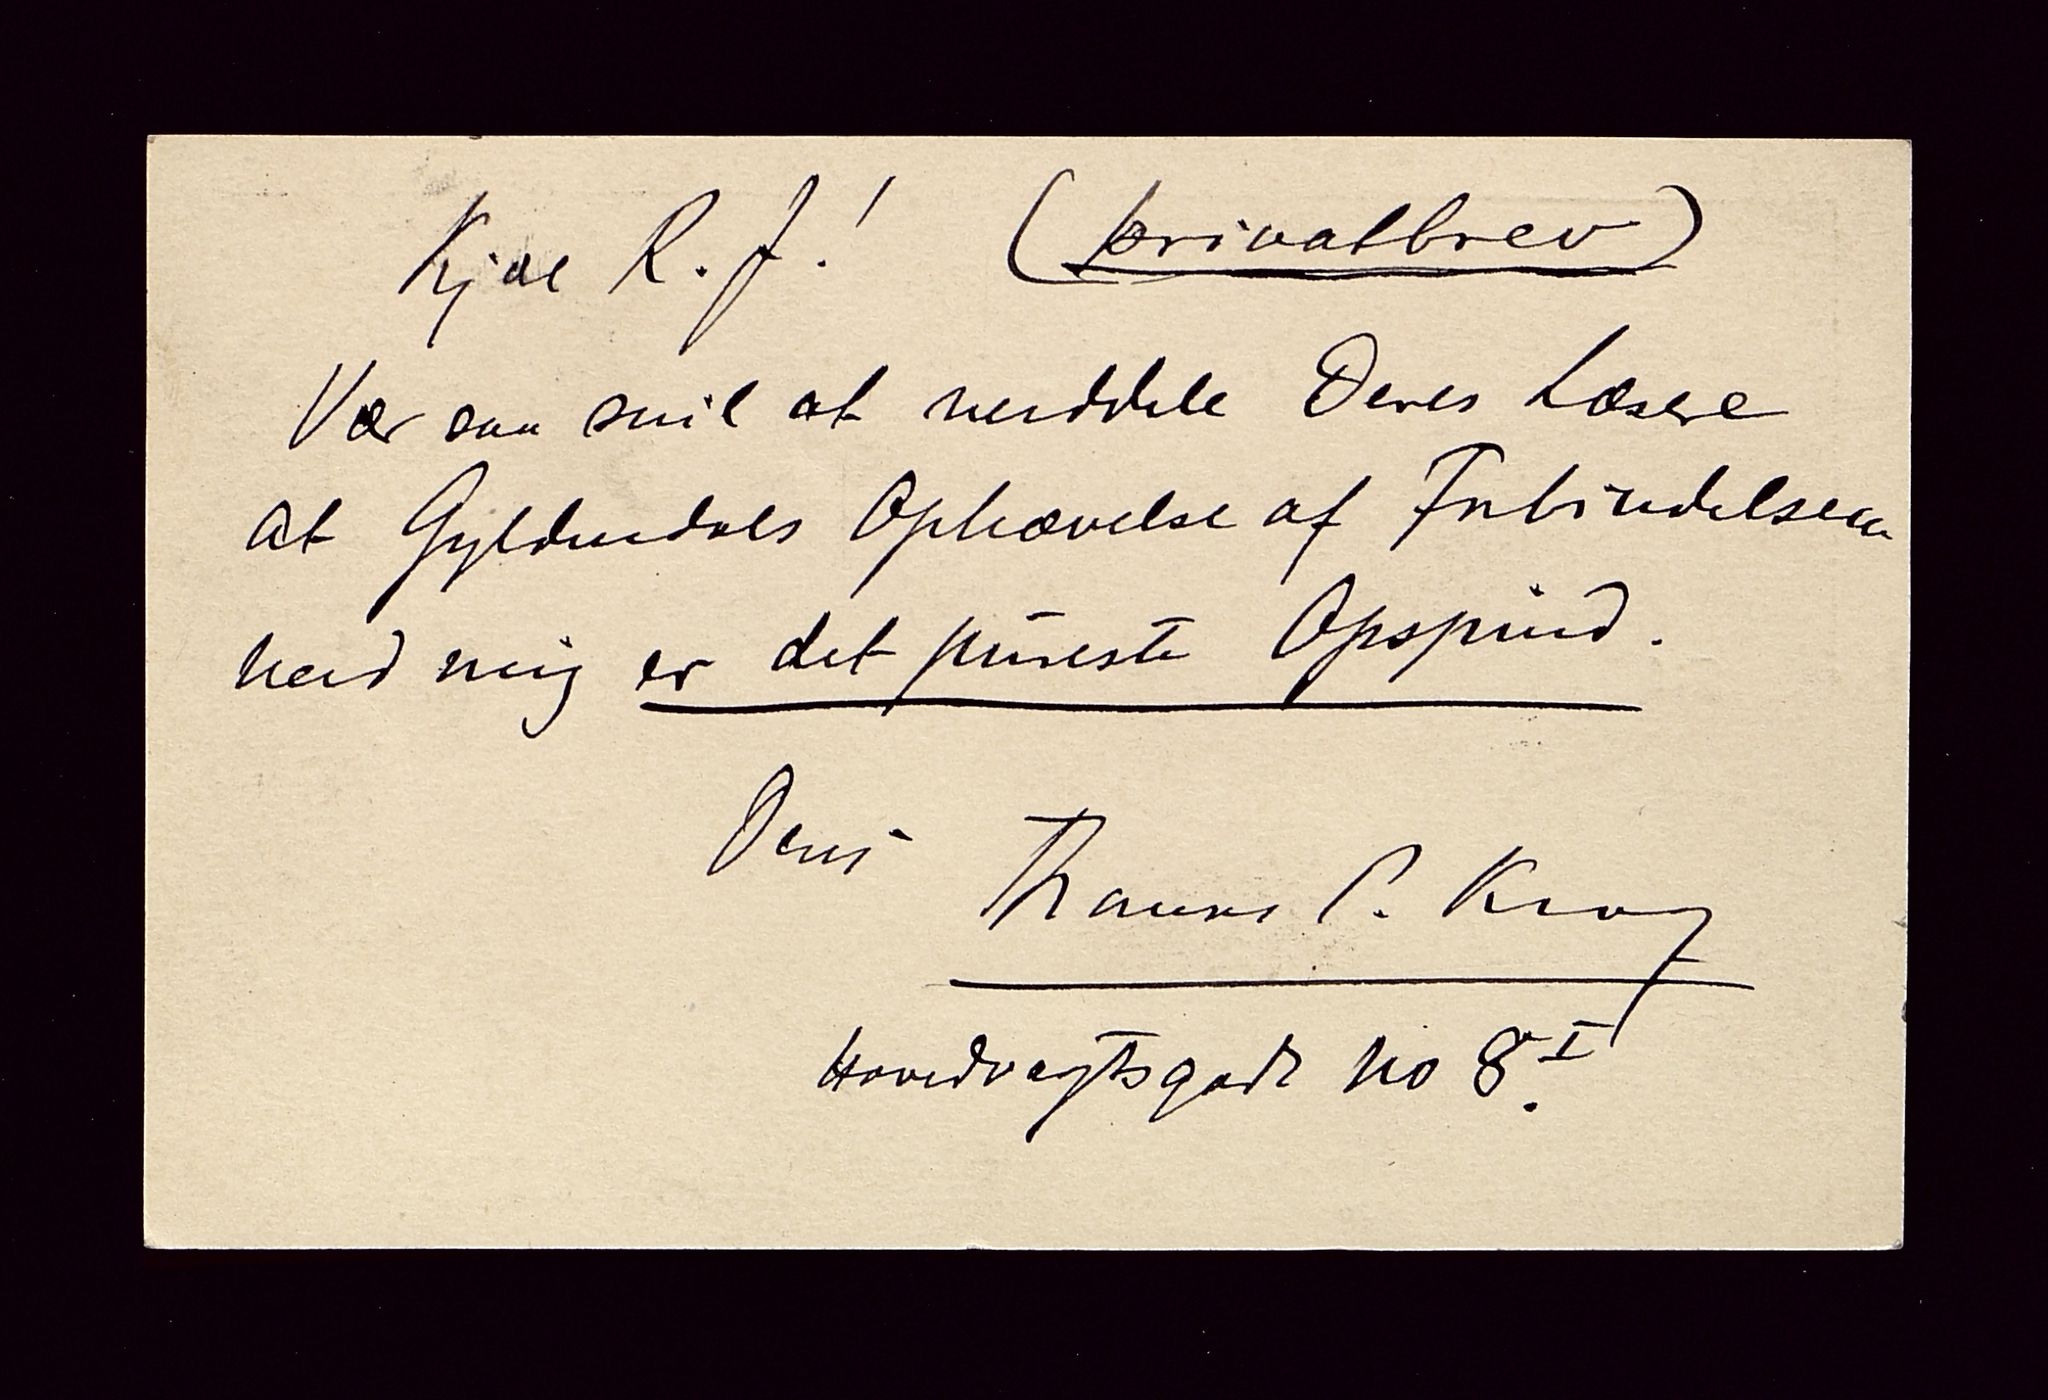 Kjære R. J.! (privatbrev)
Vær saa snil at meddele Deres Læsere
at Gyldendals Ophævelse af Forbindelsen
med mig er det pureste Opspind.
Deres Thomas P. Krag
Hovedvagtsgade No 8 I.